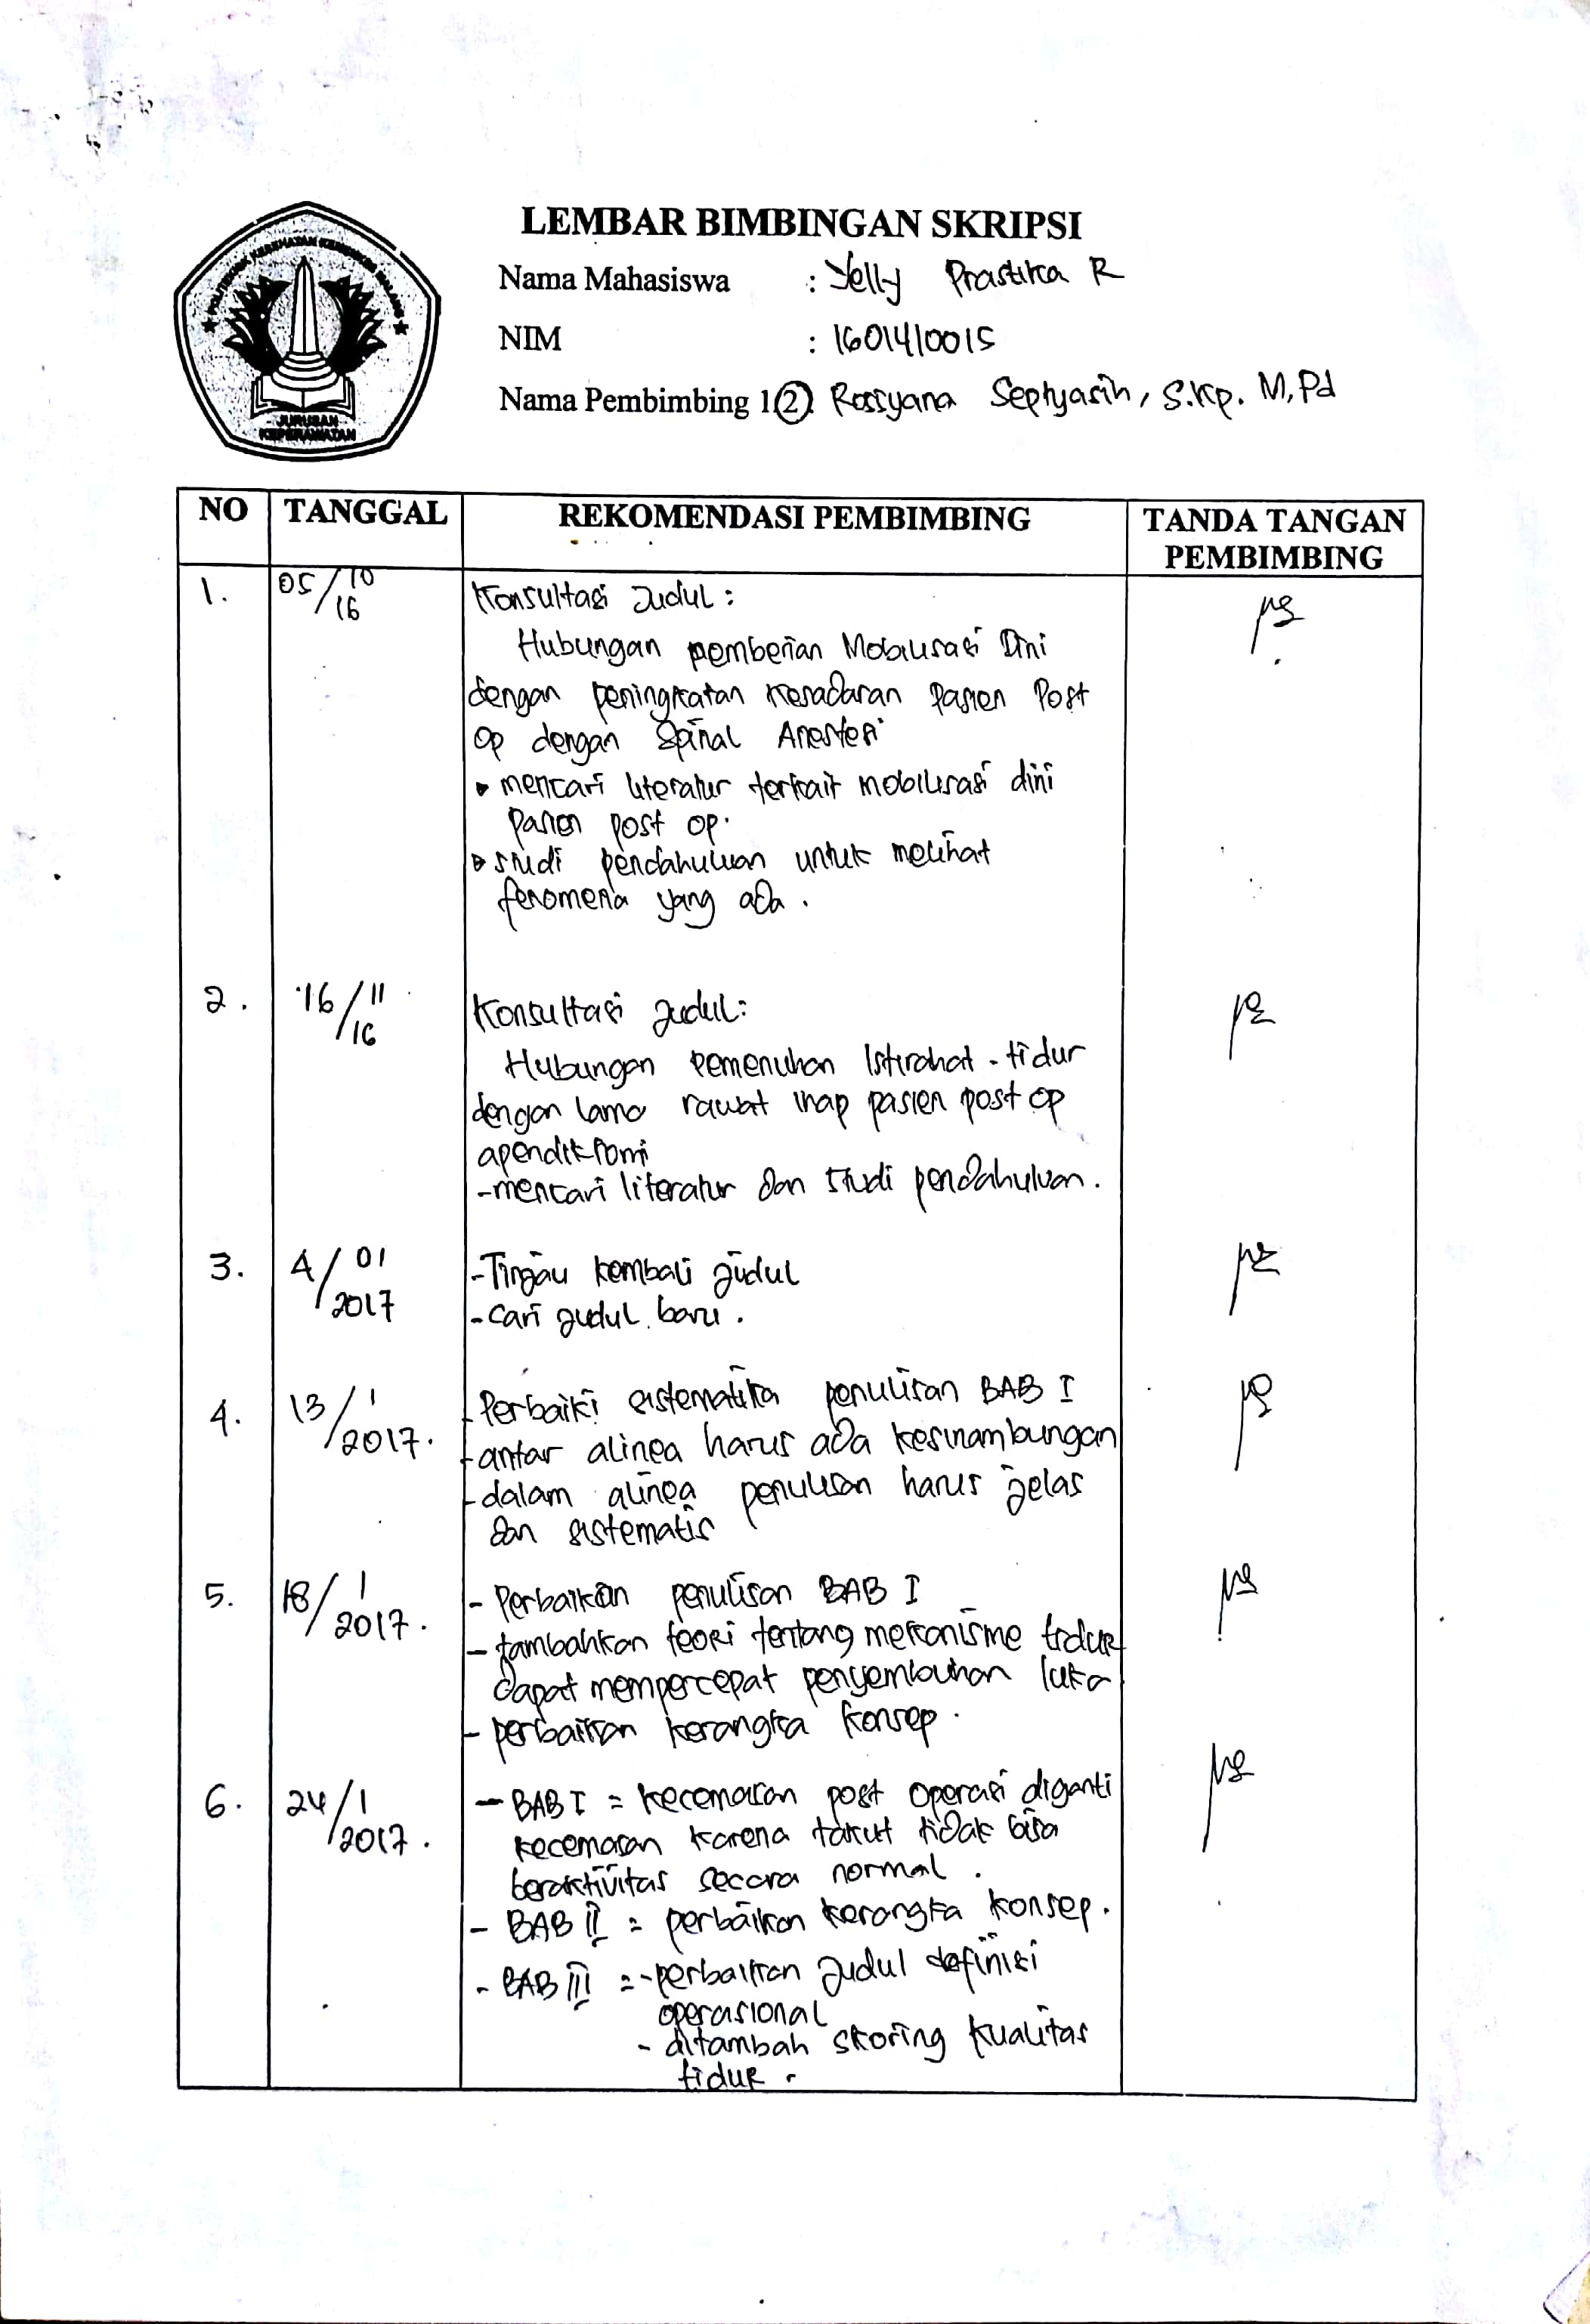 LEMBAR BIMBINGAN SKRIPSI
Nama Mahasiswa : Yelly Prastika R
NIM : 1601410015
Nama Pembimbing 1(2) Rossyana Septyasih, S.Kp. M,Pd
POLITEKNIK KESEHATAN KEMENKES MALANG
JURUSAN
KEPERAWATAN
NO TANGGAL REKOMENDASI PEMBIMBING TANDA TANGAN
PEMBIMBING
1. 05/10
16
Konsultasi Judul :
Hubungan pemberian Mobilisasi Dini
dengan peningkatan kesadaran Pasien Post
Op dengan Spinal Anestesi
▸ mencari literatur terkait mobilisasi dini
pasien post op.
▸ studi pendahuluan untuk melihat
fenomena yang ada .
2. 16/11
16
Konsultasi judul:
Hubungan Pemenuhan Istirahat - tidur
dengan lama rawat inap pasien post op
apendiktomi
- mencari literatur dan studi pendahuluan .
3. 4/01
2017
- Tinjau kembali judul
- Cari judul baru .
4. 13/1
2017.
- Perbaiki sistematika penulisan BAB I
- antar alinea harus ada kesinambungan
- dalam alinea penulisan harus jelas
dan sistematis
5. 18/1
2017.
- Perbaikan penulisan BAB I
- tambahkan teori tentang mekanisme tidur
dapat mempercepat penyembuhan luka
- perbaikan kerangka konsep .
6. 24/1
2017.
- BAB I = kecemasan post operasi diganti
kecemasan karena takut tidak bisa
beraktivitas secara normal .
- BAB II = perbaikan kerangka konsep.
- BAB III = - perbaikan judul definisi
operasional
- ditambah skoring kualitas
tidur .